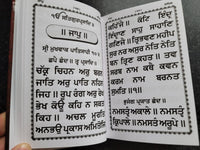 ੴ ਸਤਿਗੁਰ ਪ੍ਰਸਾਦਿ ॥
॥ ਜਾਪੁ ॥
ਸ੍ਰੀ ਮੁਖਵਾਕ ਪਾਤਿਸਾਹੀ ੧੦ ॥
ਚੱਕ੍ਰ ਚਿਹਨ ਅਰੁ ਬਰਨ
ਜਾਤਿ ਅਰੁ ਪਾਤਿ ਨਹਿਨ
ਜਿਹ ॥ ਰੂਪ ਰੰਗ ਅਰੁ ਰੇਖ
ਭੇਖ ਕੋਊ ਕਹਿ ਨ ਸਕਤ
ਕਿਹ ॥ ਅਚਲ ਮੂਰਤਿ
ਅਨਭਉ ਪ੍ਰਕਾਸ ਅਮਿਤੋਜਿ
ਕਹਿੱਜੈ ॥ ਕੋਟਿ ਇੰਦ੍ਰ
ਇੰਦ੍ਰਾਣ ਸਾਹੁ ਸਾਹਾਣਿ
ਗਣਿਜੈ ॥ ਤ੍ਰਿਭਵਣ ਮਹੀਪ
ਸੁਰ ਨਰ ਅਸੁਰ ਨੇਤਿ ਨੇਤਿ
ਬਨ ਤ੍ਰਿਣ ਕਹਤ ॥ ਤ੍ਵ ਸਰਬ
ਨਾਮ ਕਥੈ ਕਵਨ
ਕਰਮ ਨਾਮ ਬਰਨਤ
ਸੁਮਤਿ ॥੧॥
ਭੁਜੰਗ ਪ੍ਰਯਾਤ ਛੰਦ ॥
ਨਮਸਤ੍ਵੰ ਅਕਾਲੇ ॥ ਨਮਸਤ੍ਵੰ
ਕ੍ਰਿਪਾਲੇ ॥ ਨਮਸਤ੍ਵੰ ਅਰੂਪੇ ॥